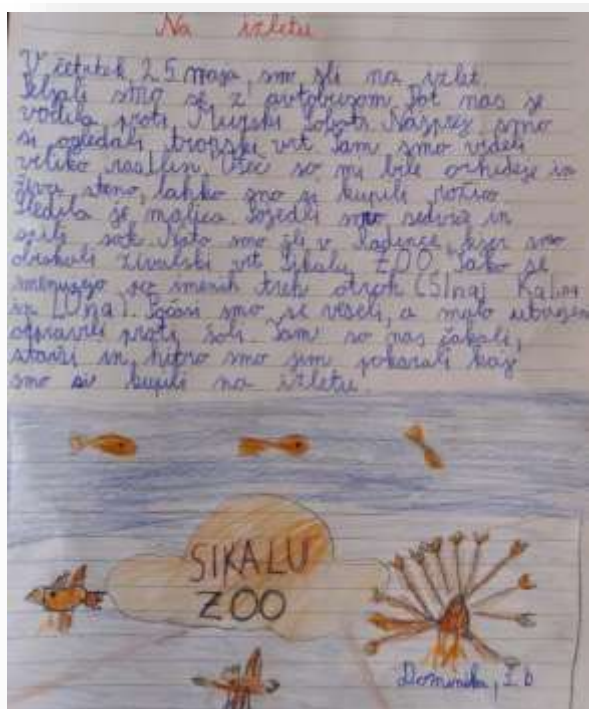 Na izletu
V četrtek, 25. maja, smo šli na izlet.
Peljali smo se z avtobusom. Pot nas je
vodila proti Murski Soboti. Najprej smo
si ogledali tropski vrt. Tam smo videli
veliko rastlin. Všeč so mi bile orhideje in
živa steno, lahko smo si kupili rožico.
Sledila je malica. Pojedli smo sendvič in
spili sok. Nato smo šli v Radence, kjer smo
obiskali živalski vrt Sikalu ZOO. Tako se
imenujejo po imenih treh otrok (SInaj, KaLina
in LUna). Počasi smo se veseli, a malo utrujeni
odpravili proti šoli. Tam so nas čakali
starši in hitro smo jim pokazali kaj
smo si kupili na izletu.
SIKALU
ZOO
Dominika, 2.b